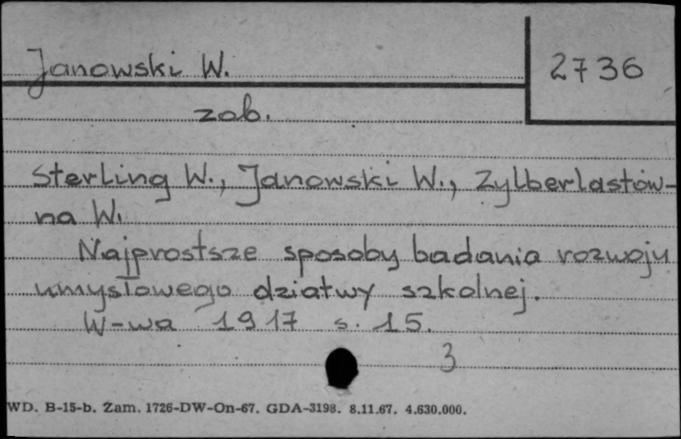 Janowski W.
2736
zob.
Sterling W., Janowski W., Zylberlastów-
na W.
Najprostsze sposoby badania rozwoju
umysłowego dziatwy szkolnej.
W-wa 1917 s. 15.
3
WD. B-15-b. Zam. 1726-DW-On-67. GDA-3198. 8.11.67. 4.630.000.